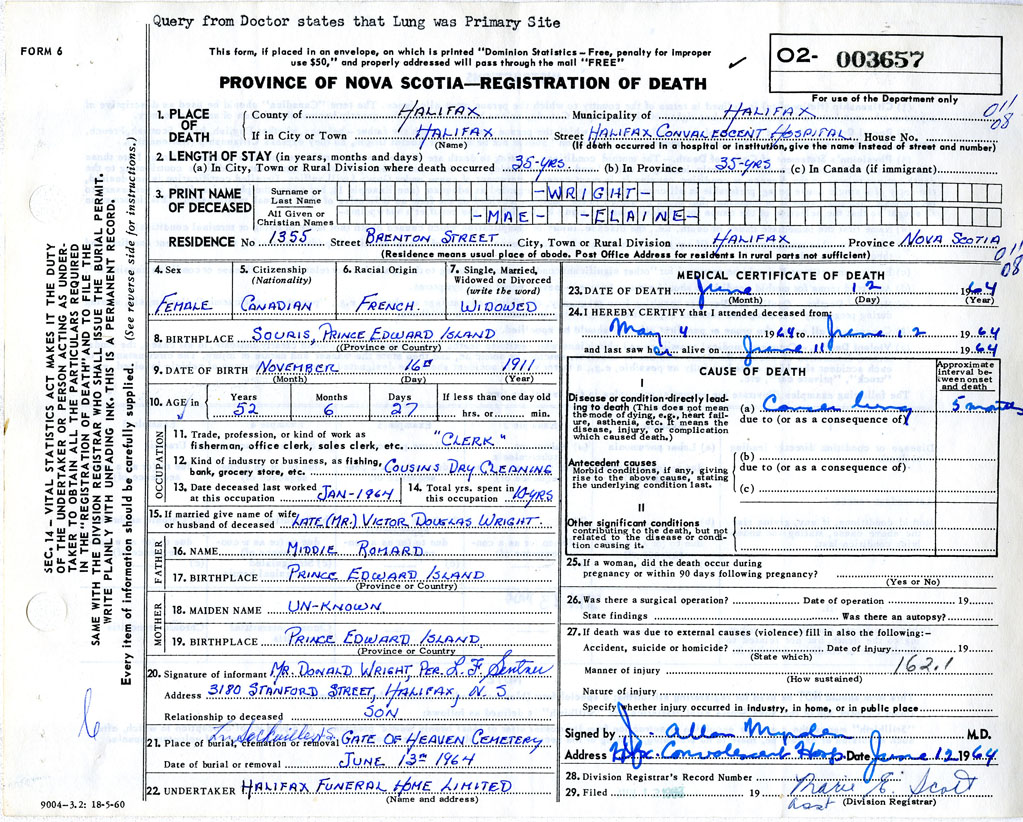 Query from Doctor states that Lung was Primary Site
FORM 6
This form, if placed in an envelope, on which is printed "Dominion Statistics – Free, penalty for improper
use $50," and properly addressed will pass through the mail "FREE"
O2- 003657
PROVINCE OF NOVA SCOTIA—REGISTRATION OF DEATH
For use of the Department only
011
08
1. PLACE OF DEATH { County of HALIFAX Municipality of HALIFAX
If in City or Town HALIFAX Street HALIFAX CONVALESCENT HOSPITAL House No.
(Name) (If death occurred in a hospital or institution, give the name instead of street and number)
2. LENGTH OF STAY (in years, months and days)
(a) In City, Town or Rural Division where death occurred 35-YRS. (b) In Province 35-YRS (c) In Canada (if immigrant)
3. PRINT NAME OF DECEASED { Surname or Last Name -WRIGHT-
All Given or Christian Names -MAE- -ELAINE-
RESIDENCE No 1355 Street BRENTON STREET City, Town or Rural Division HALIFAX Province NOVA SCOTIA
(Residence means usual place of abode. Post Office Address for residents in rural parts not sufficient)
011
08
SEC. 14 – VITAL STATISTICS ACT MAKES IT THE DUTY
OF THE UNDERTAKER OR PERSON ACTING AS UNDER-
TAKER TO OBTAIN ALL THE PARTICULARS REQUIRED
IN THE "REGISTRATION OF DEATH" AND TO FILE THE
SAME WITH THE DIVISION REGISTRAR WHO SHALL ISSUE THE BURIAL PERMIT.
WRITE PLAINLY WITH UNFADING INK. THIS IS A PERMANENT RECORD.
Every item of information should be carefully supplied. (See reverse side for instructions.)
4. Sex
FEMALE
5. Citizenship (Nationality)
CANADIAN
6. Racial Origin
FRENCH.
7. Single, Married, Widowed or Divorced (write the word)
WIDOWED
8. BIRTHPLACE SOURIS, PRINCE EDWARD ISLAND
(Province or Country)
9. DATE OF BIRTH NOVEMBER 16th 1911
(Month) (Day) (Year)
10. AGE in { Years 52 Months 6 Days 27 If less than one day old hrs. or min.
OCCUPATION
11. Trade, profession, or kind of work as fisherman, office clerk, sales clerk, etc. "CLERK"
12. Kind of industry or business, as fishing, bank, grocery store, etc. COUSINS DRY CLEANING
13. Date deceased last worked at this occupation JAN-1964
14. Total yrs. spent in this occupation 10-YRS
15. If married give name of wife or husband of deceased LATE (MR.) VICTOR DOUGLAS WRIGHT.
FATHER
16. NAME MIDDIE ROMARD
17. BIRTHPLACE PRINCE EDWARD ISLAND
(Province or Country)
MOTHER
18. MAIDEN NAME UN-KNOWN
19. BIRTHPLACE PRINCE EDWARD ISLAND
(Province or Country
20. Signature of informant MR. DONALD WRIGHT, PER. L.F.
Address 3180 STANFORD STREET, HALIFAX, N.S
Relationship to deceased SON
21. Place of burial, cremation or removal GATE OF HEAVEN CEMETERY
Date of burial or removal JUNE 13th 1964
22. UNDERTAKER HALIFAX FUNERAL HOME LIMITED
(Name and address)
9004–3.2: 18-5-60
MEDICAL CERTIFICATE OF DEATH
23. DATE OF DEATH June 12 1964
(Month) (Day) (Year)
24. I HEREBY CERTIFY that I attended deceased from:
May 4 1964 to June 12 1964
and last saw her alive on June 11 1964
CAUSE OF DEATH
Approximate interval between onset and death
I
Disease or condition directly leading to death (This does not mean the mode of dying, e.g., heart failure, asthenia, etc. It means the disease, injury, or complication which caused death.)
(a) Cancer lung 5 months
due to (or as a consequence of)
Antecedent causes
Morbid conditions, if any, giving rise to the above cause, stating the underlying condition last.
(b)
due to (or as a consequence of)
(c)
II
Other significant conditions
contributing to the death, but not related to the disease or condition causing it.
25. If a woman, did the death occur during
pregnancy or within 90 days following pregnancy?
(Yes or No)
26. Was there a surgical operation? Date of operation 19
State findings Was there an autopsy?
27. If death was due to external causes (violence) fill in also the following:–
Accident, suicide or homicide? Date of injury 19
(State which)
Manner of injury 162.1
(How sustained)
Nature of injury
Specify whether injury occurred in industry, in home, or in public place
Signed by J. Allan Myrden M.D.
Address Hfx. Convalescent Hosp. Date June 12 1964
28. Division Registrar's Record Number
29. Filed 19 Marie E. Scott
asst (Division Registrar)